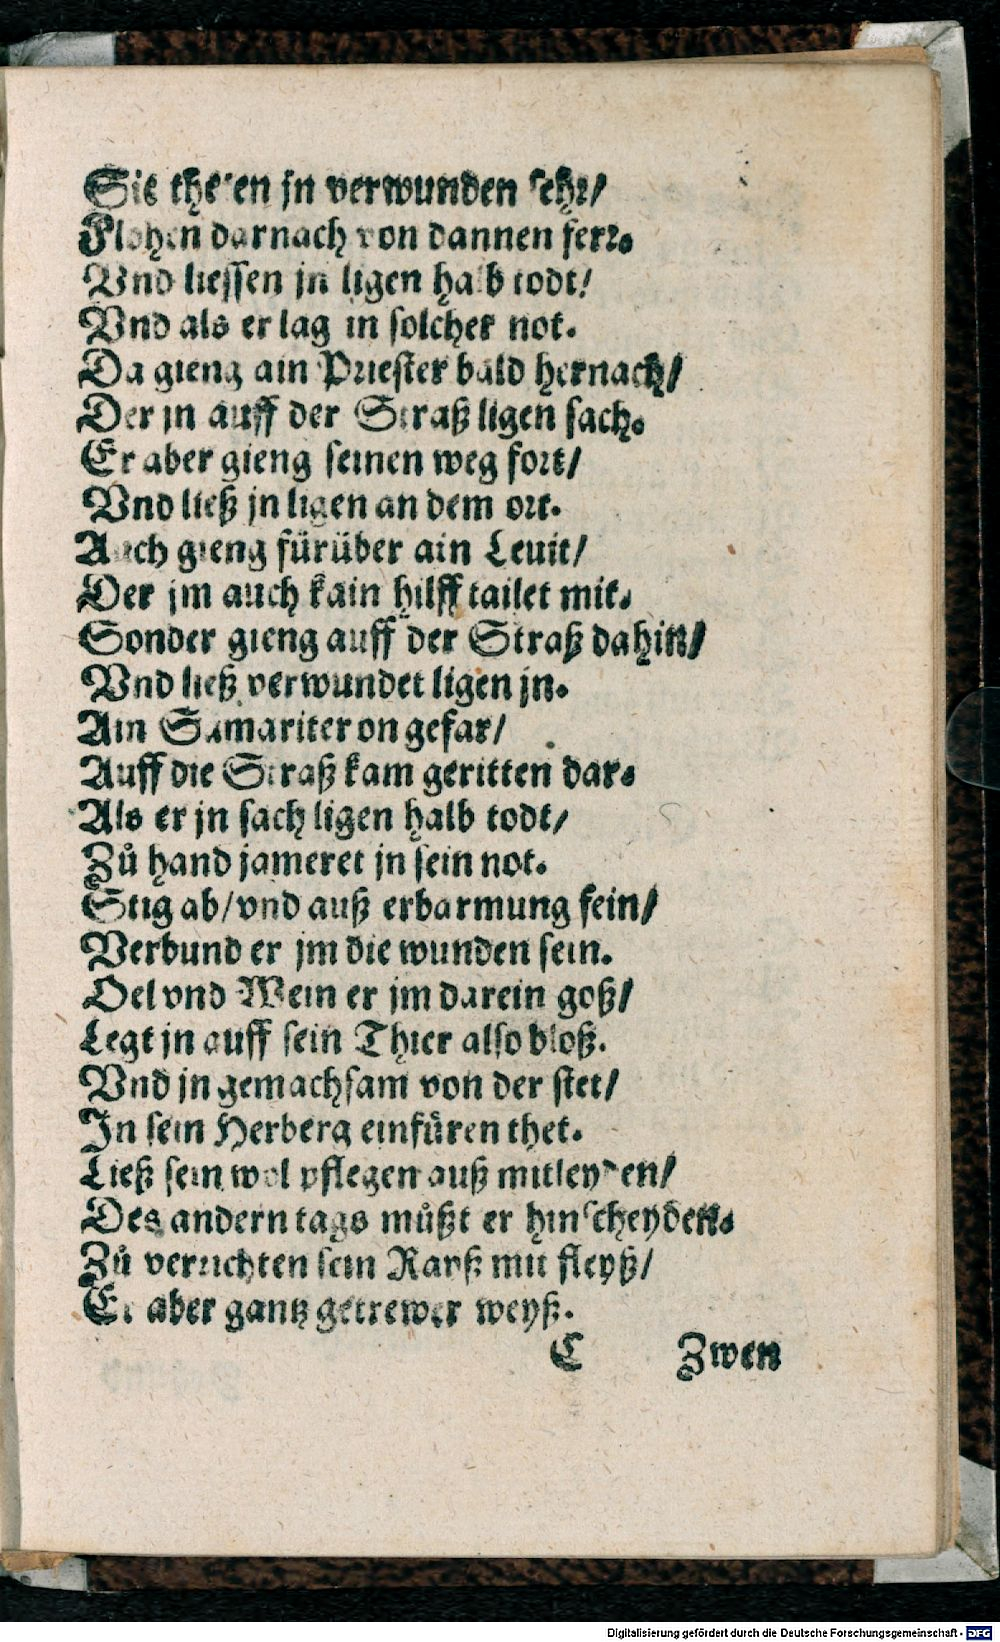 Sie theten jn verwunden sehr/
Flohen darnach von dannen ferr.
Vnd liessen jn ligen halb todt/
Vnd als er lag in solcher not.
Da gieng ain Priester bald hernach/
Der jn auff der Straß ligen sach.
Er aber gieng seinen weg fort/
Vnd ließ jn ligen an dem ort.
Auch gieng fürüber ain Leuit/
Der jm auch kain hilff tailet mit.
Sonder gieng auff der Straß dahin/
Vnd ließ verwundet ligen jn.
Ain Samariter on gefar/
Auff die Straß kam geritten dar.
Als er jn sach ligen halb todt/
Zů hand jameret jn sein not.
Stig ab/vnd auß erbarmung fein/
Verbund er jm die wunden sein.
Oel vnd Wein er jm darein goß/
Legt jn auff sein Thier also bloß.
Vnd jn gemachsam von der stet/
In sein Herberg einfüren thet.
Ließ sein wol pflegen auß mitleyden/
Des andern tags můßt er hinscheyden.
Zů verrichten sein Rayß mit fleyß/
Er aber gantz getrewer weyß.
C Zwen
Digitalisierung gefördert durch die Deutsche Forschungsgemeinschaft - DFG